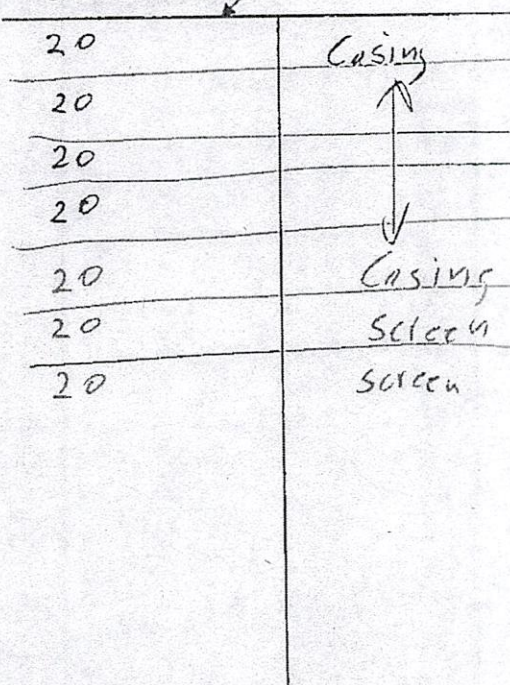 20 Casing
20
20
20
20 Casing
20 Screen
20 screen